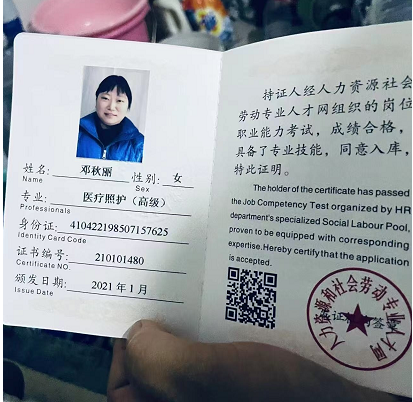 姓名: 邓秋丽 性别: 女
Name Sex
专业: 医疗照护（高级）
Professionals
身份证: 410422198507157625
Identity Card Code
证书编号: 210101480
Certificate NO.
颁发日期: 2021年1月
Issue Date
持证人经人力资源社会
劳动专业人才网组织的岗位
职业能力考试，成绩合格，
具备了专业技能，同意入库，
特此证明。
The holder of the certificate has passed
the Job Competency Test organized by HR
department's specialized Social Labour Pool,
proven to be equipped with corresponding
expertise.Hereby certify that the application
is accepted.
人力资源和社会劳动专业